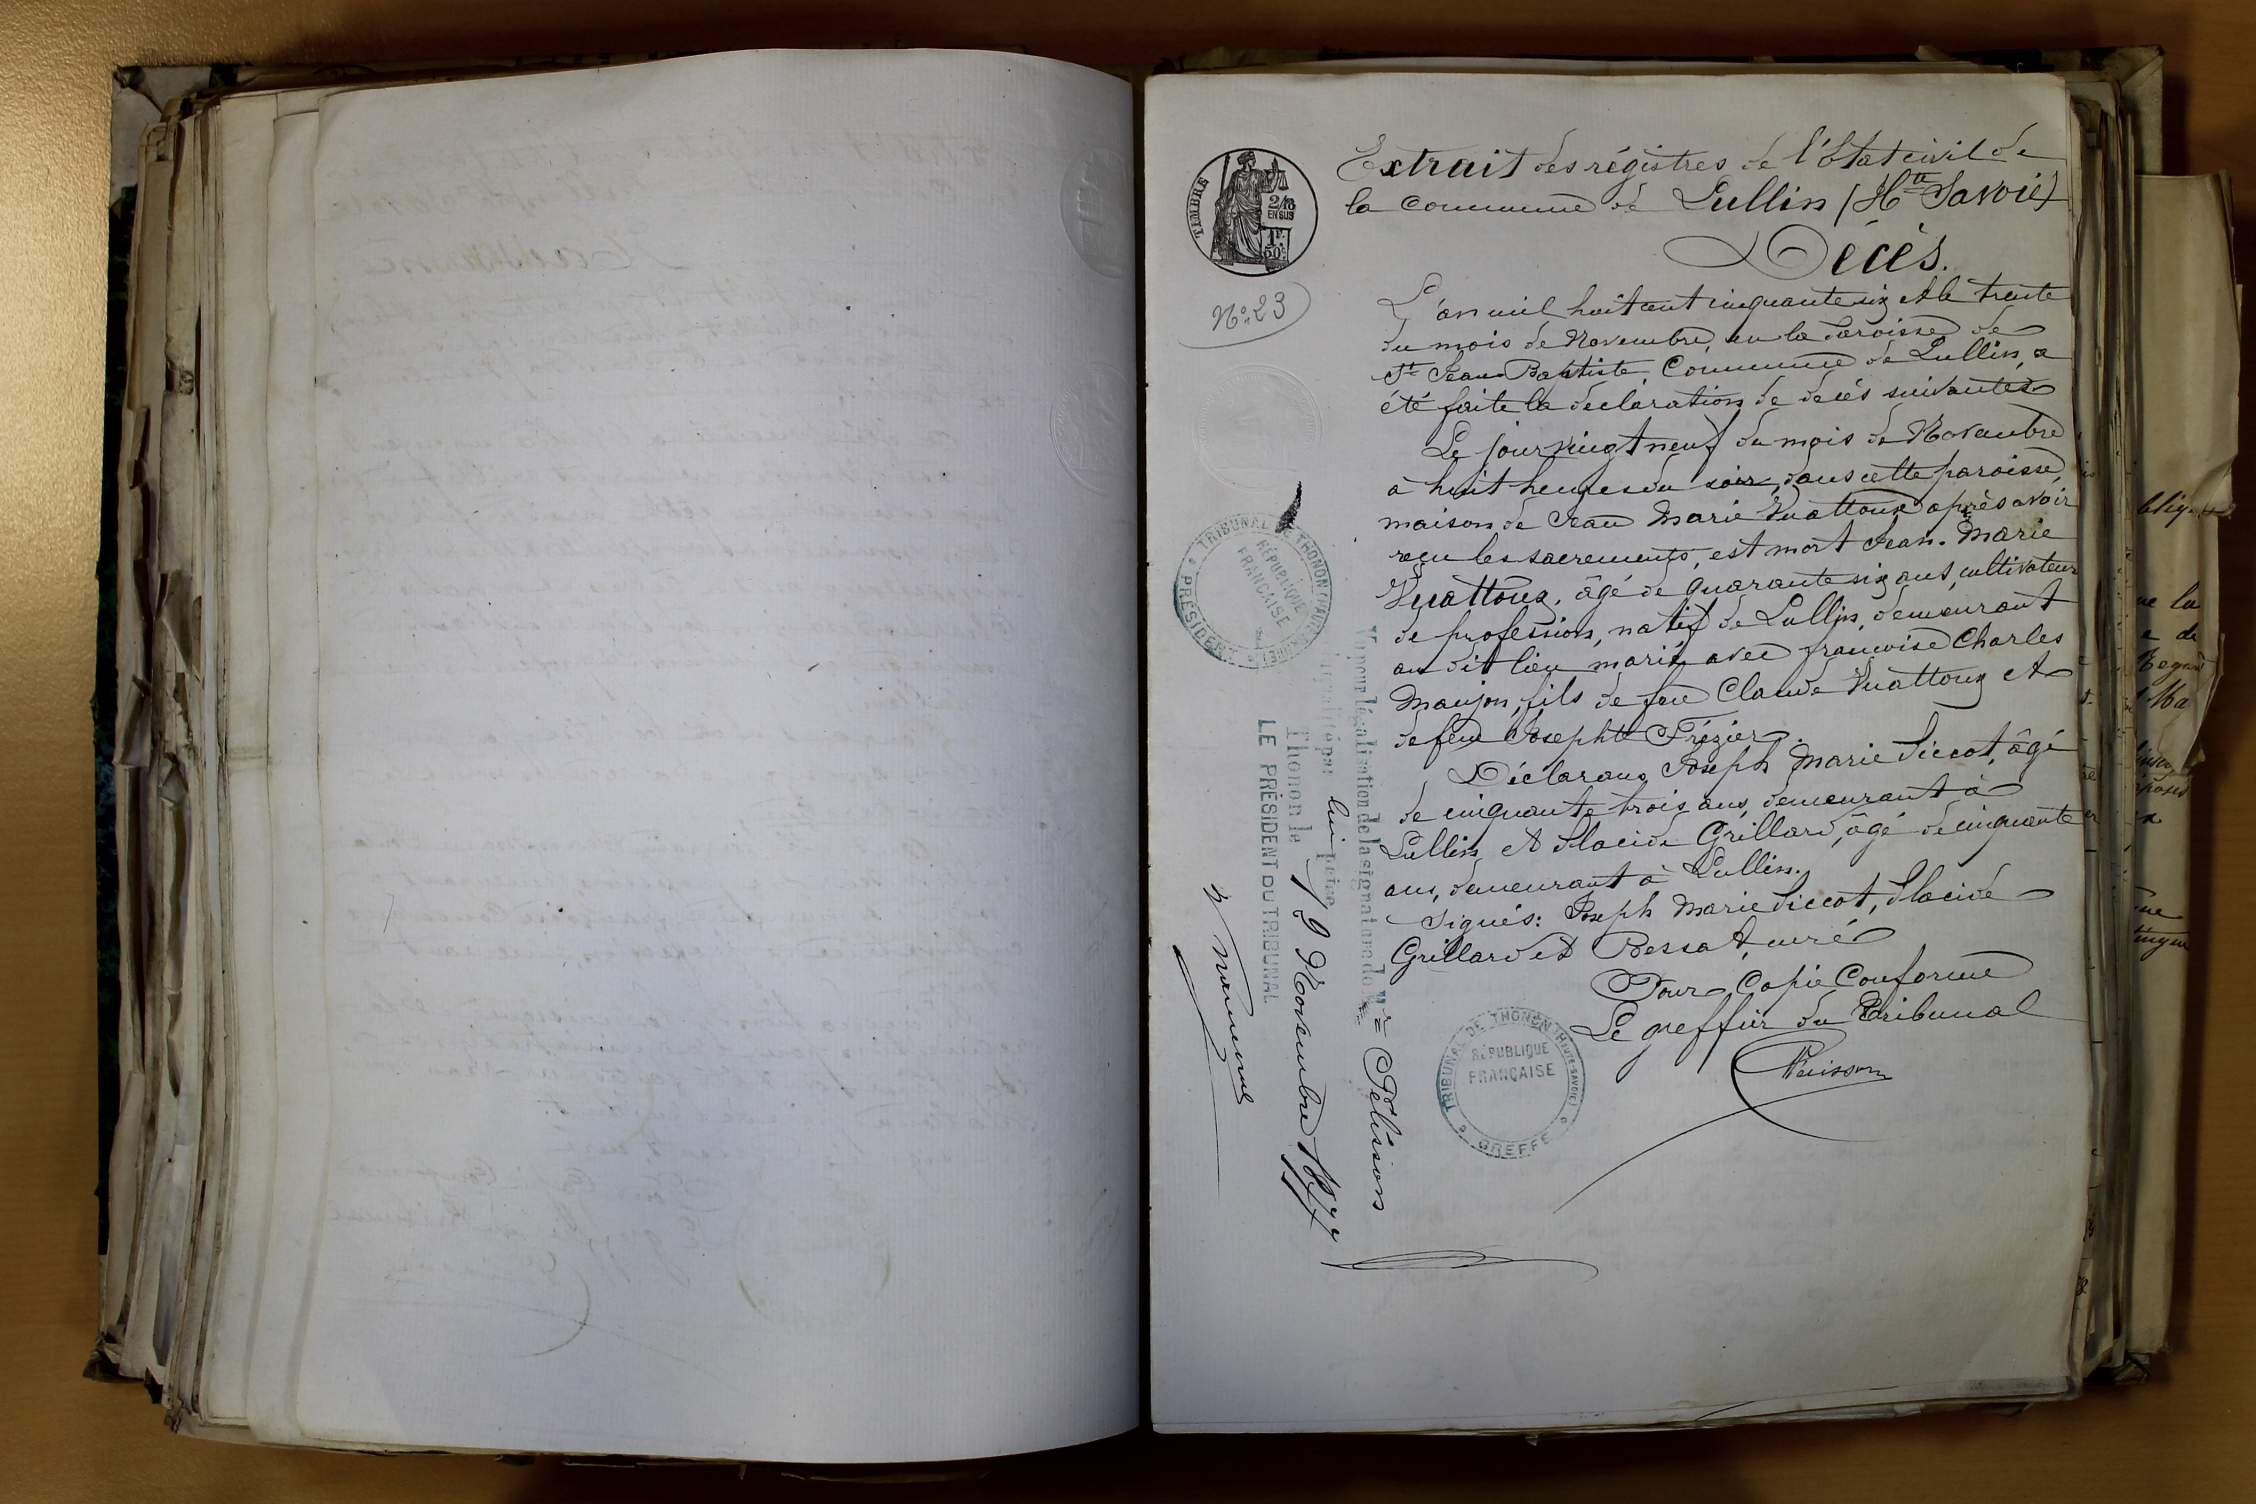 Extrait des régistres de l'Etat civil de
la commune de Lullin (Hte Savoie)
Décès.
TIMBRE
2/10
EN SUS
1F.
50c.
No. 23
L'an mil huit cent cinquante six et le trente
du mois de Novembre, en la Paroisse de
St Jean-Baptiste, Commune de Lullin, a
été faite la déclaration de décès suivante
Le jour vingt neuf du mois de Novembre
à huit heures du soir, dans cette paroisse,
maison de Jean Marie Vuattoux après avoir
reçu les sacrements, est mort Jean-Marie
Vuattoux, âgé de quarante six ans, cultivateur
de profession, natif de Lullin, demeurant
au dit lieu marié avec françoise Charles
Maujon, fils de feu Claude Vuattoux et
de feue Josephte Frézier.
Déclarans Joseph Marie Piccot, âgé
de cinquante trois ans, demeurant à
Lullin et Placide Grillard, âgé de cinquante
ans, demeurant à Lullin.
Signés: Joseph Marie Piccot, Placide
Grillard et Bessat, curé
Pour Copie Conforme
Le greffier du Tribunal
TRIBUNAL DE THONON (HAUTE-SAVOIE)
PRÉSIDENT
RÉPUBLIQUE
FRANÇAISE
TRIBUNAL DE THONON (HAUTE-SAVOIE)
RÉPUBLIQUE
FRANÇAISE
GREFFE
Vu pour légalisation de la signature de Mr Pélisson
Thonon le 19 Novembre 1877
LE PRÉSIDENT DU TRIBUNAL